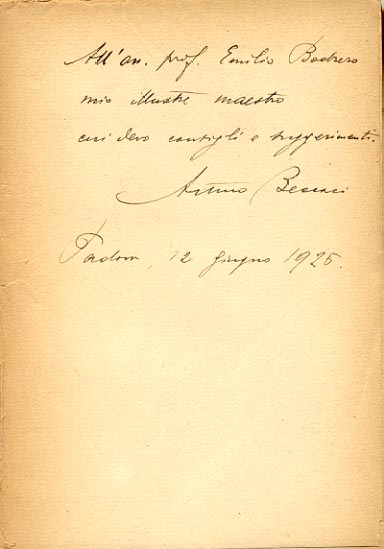 All'on. prof. Emilio Bodrero
mio illustre maestro
cui devo consigli e suggerimenti.
Arturo
Padova, 12 giugno 1925.